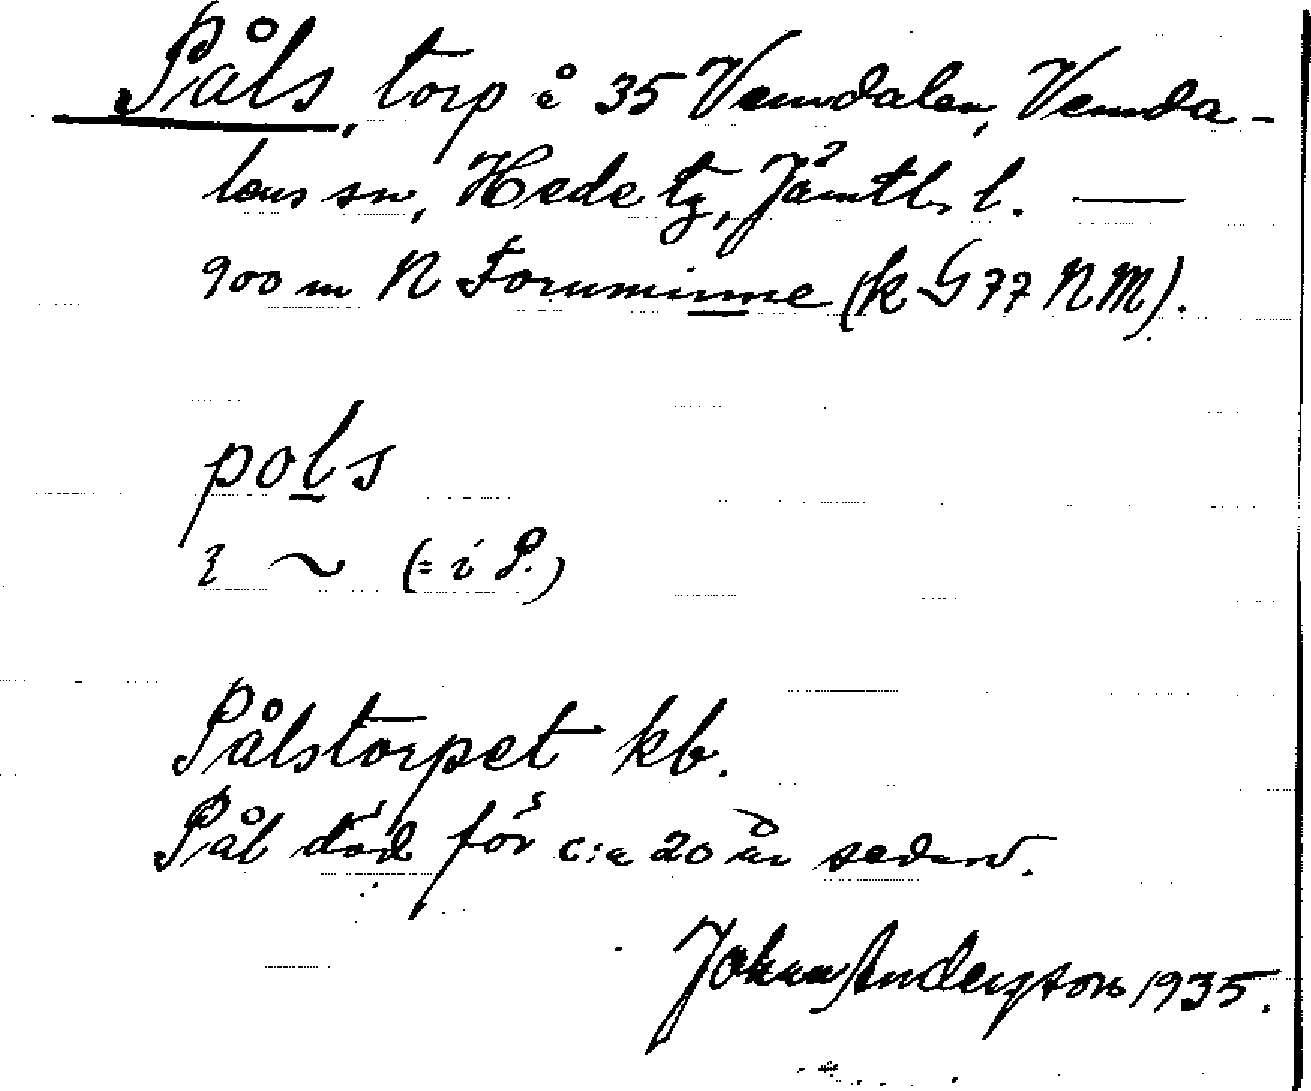 Påls, torp å 35 Vemdalen, Vemda-
lens sn, Hede tg, Jämtl. l. —
900 m N Fornminne (k G 77 NM).
pols
i ~ (= i P.)
Pålstorpet kb.
Pål död för c:a 20 år sedan.
Johan Anderson 1935.